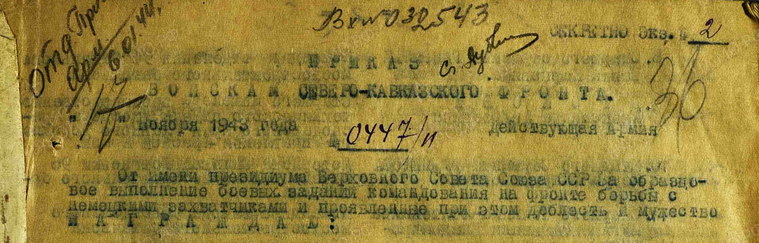 Вх №032543
СЕКРЕТНО Экз. № 2
Отд
6.01.44.
ПРИКАЗ
36
ВОЙСКАМ СЕВЕРО-КАВКАЗСКОГО ФРОНТА.
"17" Ноября 1943 года № 0447/н Действующая Армия
От имени президиума Верховного Совета Союза ССР за образцо-
вое выполнение боевых заданий командования на фронте борьбы с
немецкими захватчиками и проявленные при этом доблесть и мужество
НАГРАЖДАЮ: